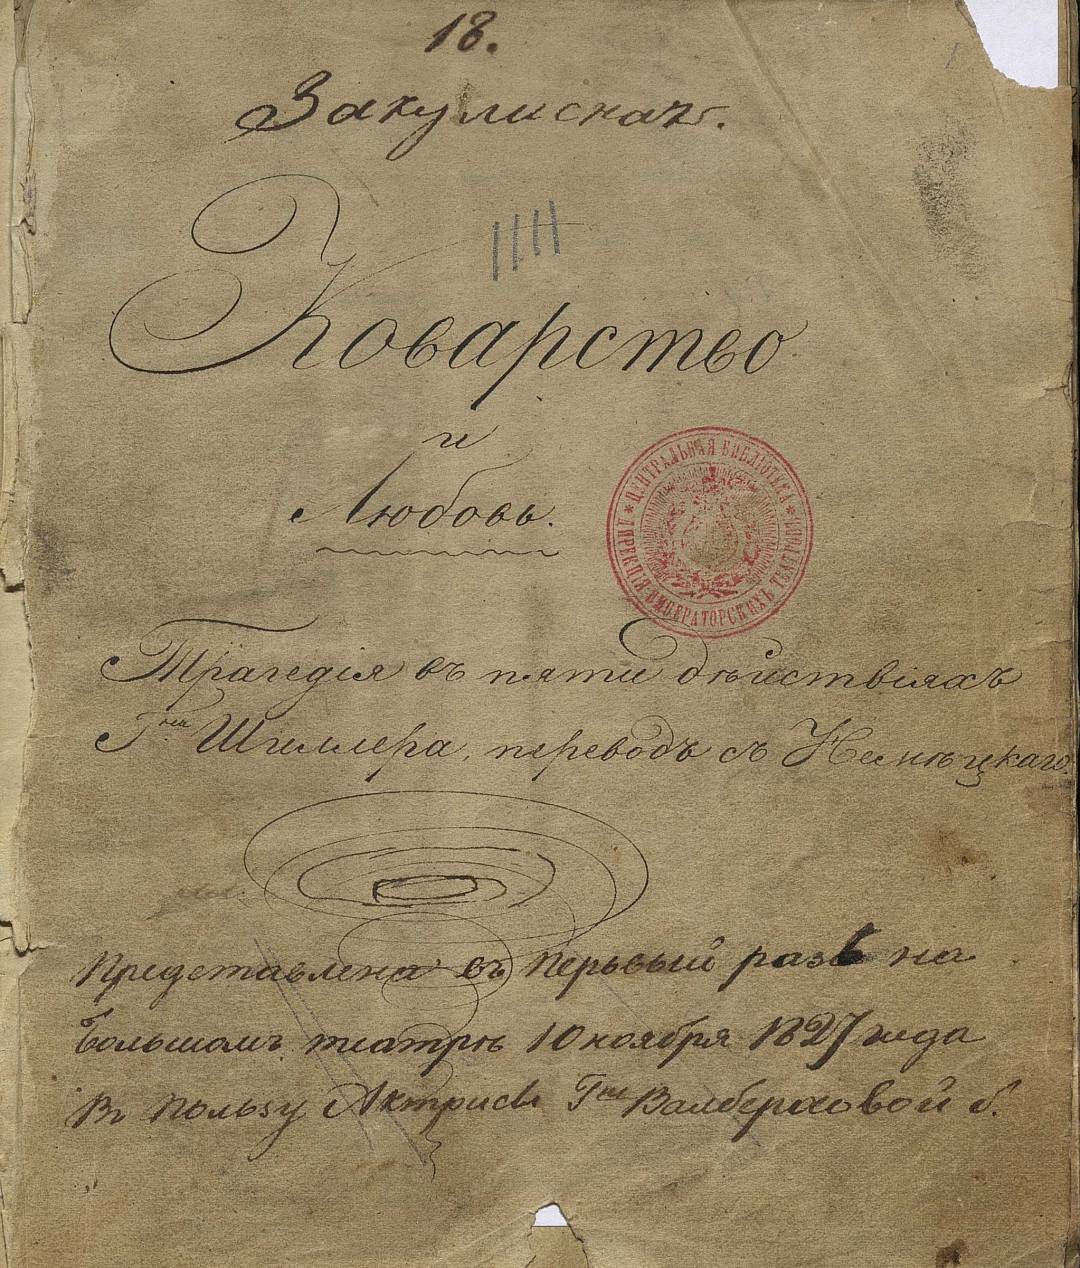 18.
Закулисная.
Коварство
и
Любовь.
ЦЕНТРАЛЬНАЯ БИБЛІОТЕКА
ДИРЕКЦІЯ ИМПЕРАТОРСКИХЪ ТЕАТРОВЪ
Трагедія въ пяти дѣйствіяхъ
Гна Шиллера, переводъ съ Немѣцкаго.
Представлена въ Перьвый разъ на
Большомъ театрѣ 10 ноября 1827 года
Въ Пользу Актрисы Гжи Валберховой б.